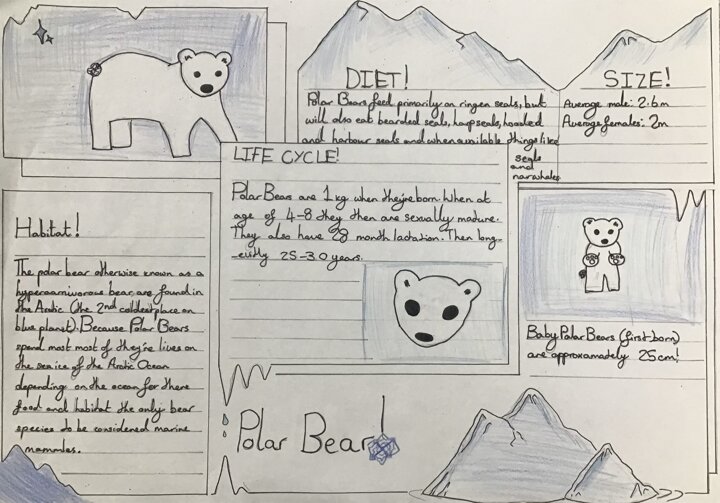 DIET!
Polar Bears feed primarily on ringen seals, but
will also eat bearded seals, harpseals, hooded
and harbour seals and when available things like
seals
and
narwhales
SIZE!
Average male: 2.6m
Average females: 2m
LIFE CYCLE!
Polar Bears are 1 kg when they're born. When at
age of 4-8 they then are sexually mature.
They also have 28 month lactation. Then long-
-evitly 25-30 years.
Habitat!
The polar bear otherwise known as a
hypercarnivorous bear, are found in
the Arctic (the 2nd coldest place on
blue planet). Because Polar Bears
spend most most of they're lives on
the sea ice of the Arctic Ocean
depending on the ocean for there
food and habitat the only bear
species to be considered marine
mammales.
Baby Polar Bears (first-born)
are approxamately 25cm!
Polar Bear!